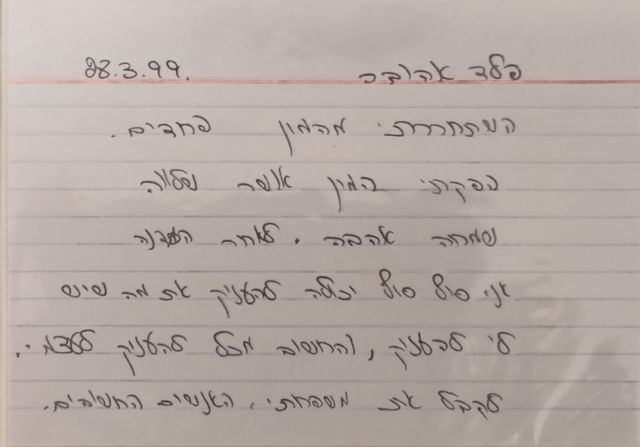 פלד אהובה 28.3.99.
השתחררתי מהמון פחדים.
הפקתי המון אושר שלווה
שמחה אהבה. לאחר הסדנה
אני סוף סוף יכולה להעניק את מה שיש
לי להעניק, והחשוב מכל להעניק לעצמי.
לקבל את משפחתי, האנשים החשובים.